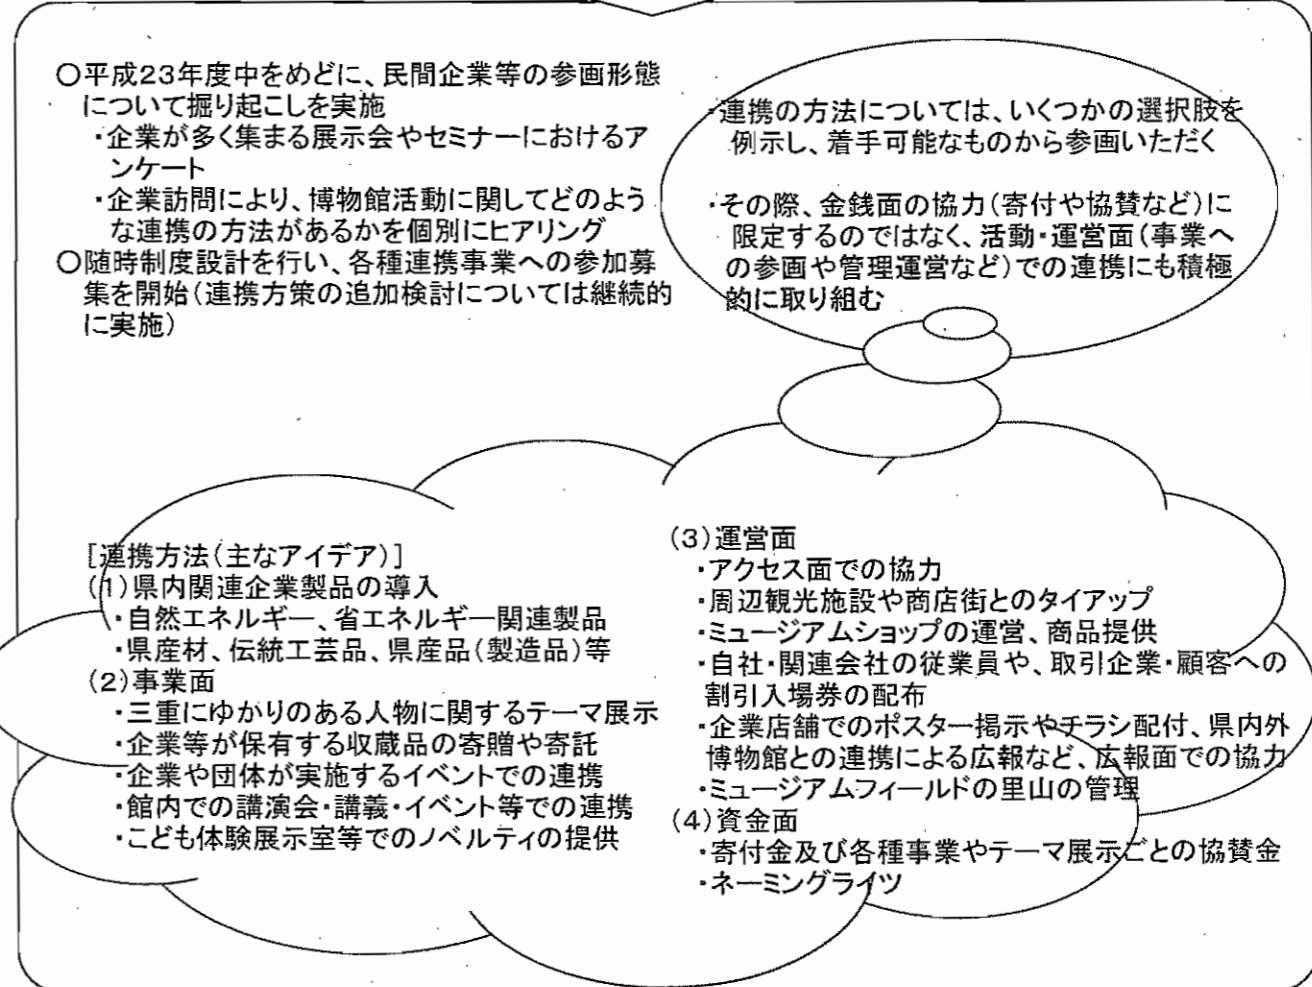 ○平成23年度中をめどに、民間企業等の参画形態
について掘り起こしを実施
・企業が多く集まる展示会やセミナーにおけるア
ンケート
・企業訪問により、博物館活動に関してどのよう
な連携の方法があるかを個別にヒアリング
○随時制度設計を行い、各種連携事業への参加募
集を開始(連携方策の追加検討については継続的
に実施)
・連携の方法については、いくつかの選択肢を
例示し、着手可能なものから参画いただく
・その際、金銭面の協力(寄付や協賛など)に
限定するのではなく、活動・運営面(事業へ
の参画や管理運営など)での連携にも積極
的に取り組む
[連携方法(主なアイデア)]
(1)県内関連企業製品の導入
・自然エネルギー、省エネルギー関連製品
・県産材、伝統工芸品、県産品(製造品)等
(2)事業面
・三重にゆかりのある人物に関するテーマ展示
・企業等が保有する収蔵品の寄贈や寄託
・企業や団体が実施するイベントでの連携
・館内での講演会・講義・イベント等での連携
・こども体験展示室等でのノベルティの提供
(3)運営面
・アクセス面での協力
・周辺観光施設や商店街とのタイアップ
・ミュージアムショップの運営、商品提供
・自社・関連会社の従業員や、取引企業・顧客への
割引入場券の配布
・企業店舗でのポスター掲示やチラシ配付、県内外
博物館との連携による広報など、広報面での協力
・ミュージアムフィールドの里山の管理
(4)資金面
・寄付金及び各種事業やテーマ展示ごとの協賛金
・ネーミングライツ